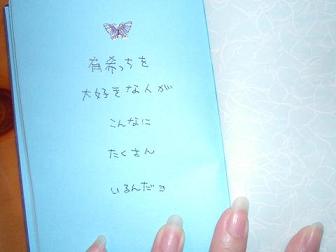 有希っちを
大好きな人が
こんなに
たくさん
いるんだョ